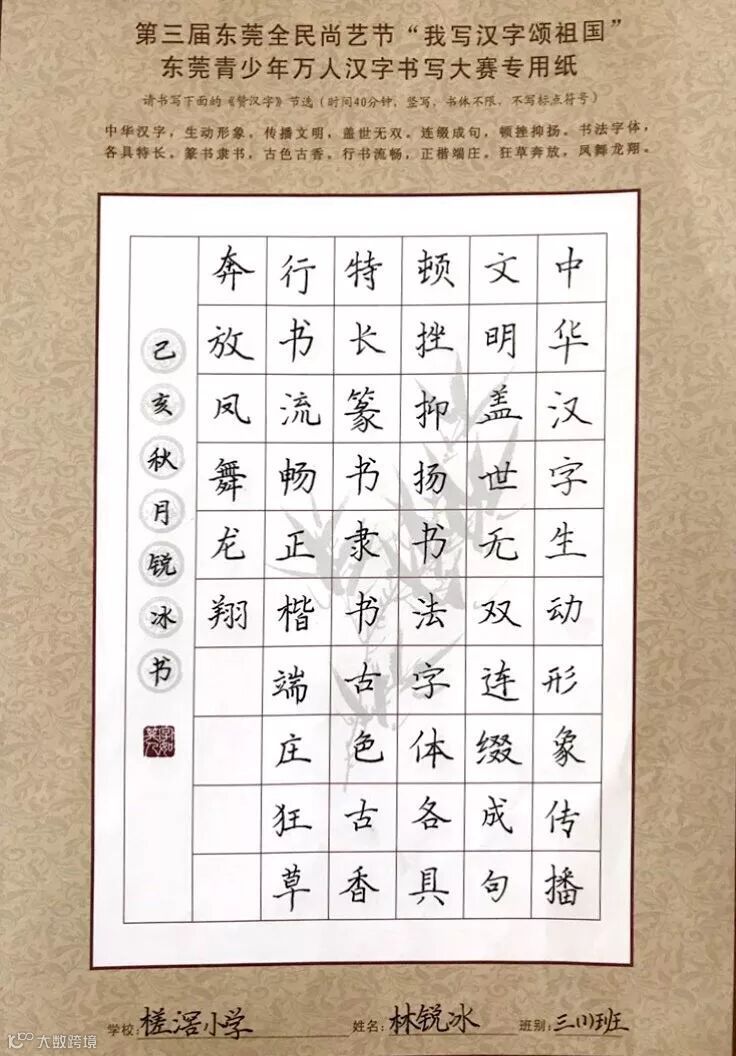 第三届东莞全民尚艺节“我写汉字颂祖国”
东莞青少年万人汉字书写大赛专用纸
请书写下面的《赞汉字》节选（时间40分钟，竖写，书体不限，不写标点符号）
中华汉字，生动形象。传播文明，盖世无双。连缀成句，顿挫抑扬。书法字体，
各具特长。篆书隶书，古色古香。行书流畅，正楷端庄。狂草奔放，凤舞龙翔。
中华汉字生动形象传播
文明盖世无双连缀成句
顿挫抑扬书法字体各具
特长篆书隶书古色古香
行书流畅正楷端庄狂草
奔放凤舞龙翔
己亥秋月锐冰书
学校:槎滘小学 姓名:林锐冰 班别:三(1)班
大数跨境